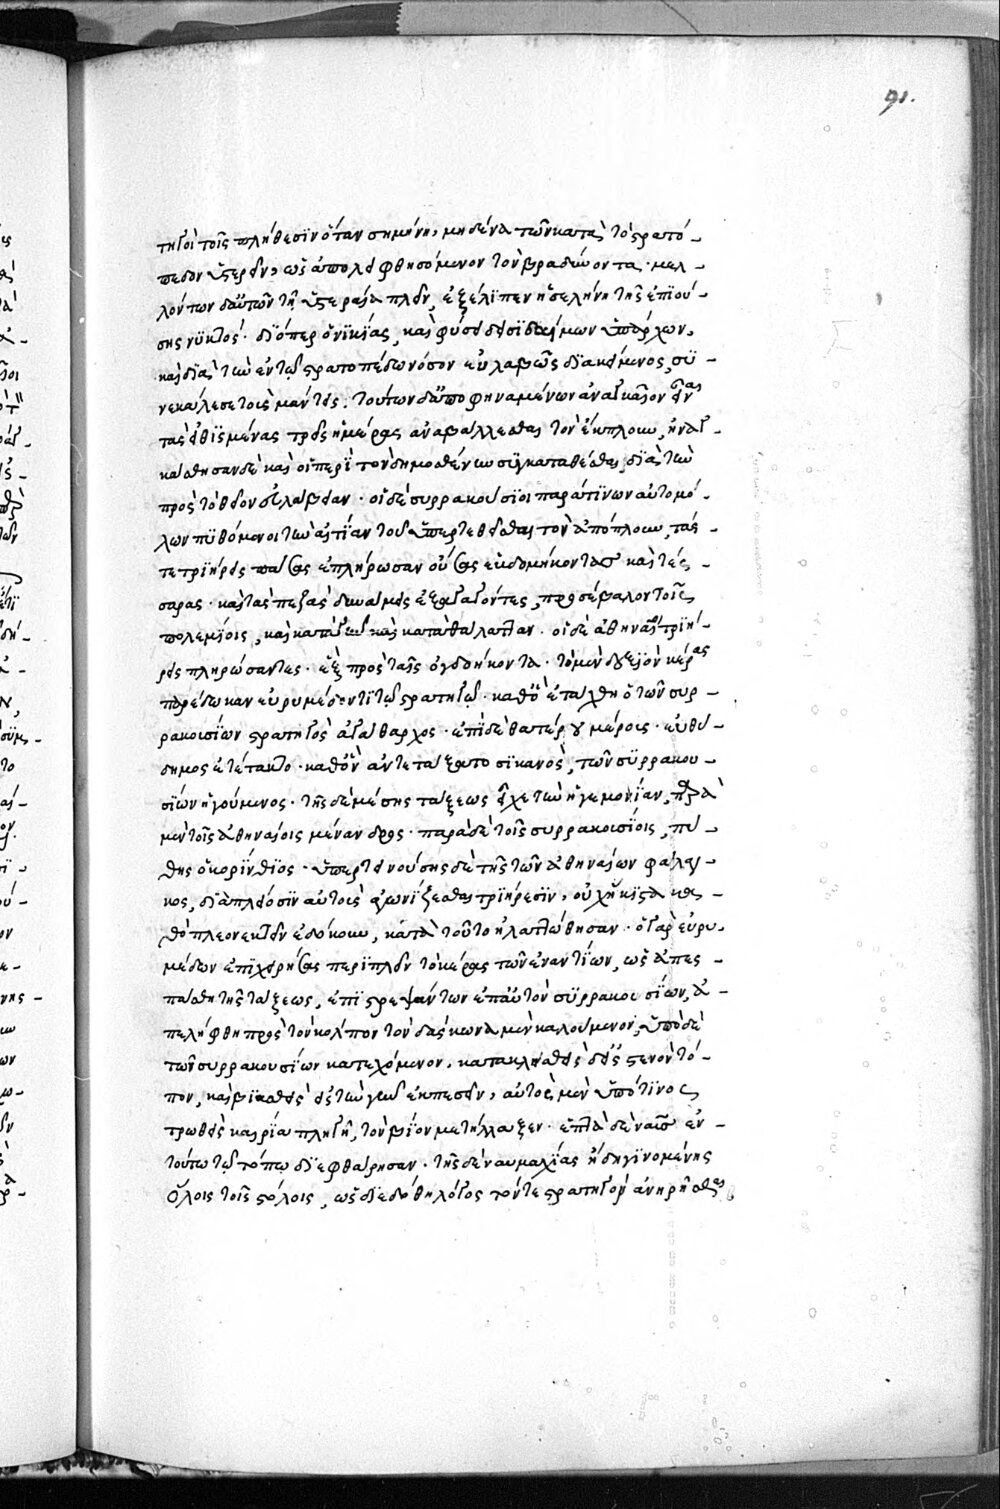 91.
τηγοὶ τοῖς πλήθεσιν ὅταν σημήνη, μηδένα τῶν κατὰ τὸ στρατό-
πεδον ὑστερεῖν, ὡς ἀπολειφθησόμενον τὸν βραδύνοντα. μελ-
λόντων δ' αὐτῶν τῇ ὑστεραία πλεῖν, ἐξέλιπεν ἡ σελήνη τῆς ἐπιού-
σης νυκτός. διόπερ ὁ νικίας, καὶ φύσει δεισιδαίμων ὑπάρχων,
καὶ διὰ τὴν ἐν τῷ στρατοπέδω νόσον εὐλαβῶς διακείμενος, συ-
νεκάλεσε τοὺς μάντεις. τούτων δ' ἀποφηναμένων ἀναγκαῖον εἶναι
τὰς εἰθισμένας τρεῖς ἡμέρας ἀναβάλλεσθαι τὸν ἔκπλουν, ἠναγ-
κάσθησαν δὲ καὶ οἱ περὶ τὸν δημοσθένην συγκαταθέσθαι, διὰ τὴν
πρὸς τὸ θεῖον εὐλάβειαν. οἱ δὲ συρρακούσιοι παρά τινων αὐτομό-
λων πυθόμενοι τὴν αἰτίαν τοῦ ὑπερτεθεῖσθαι τὸν ἀπόπλουν, τάς-
τε τριήρεις πάσας ἐπλήρωσαν οὔσας ἑβδομήκοντα καὶ τές-
σαρας. καὶ τὰς πεζὰς δυνάμεις ἐξαγαγόντες, προσέβαλον τοῖς
πολεμίοις, καὶ κατὰ γῆν καὶ κατὰ θάλατταν. οἱ δὲ ἀθηναῖοι τριή-
ρεις πληρώσαντες. ἓξ πρὸς ταῖς ὀγδοήκοντα. τὸ μὲν δεξιὸν κέρας
παρέδωκαν εὐρυμέδοντι τῷ στρατηγῷ. καθ' ὃ ἐτάχθη ὁ τῶν συρ-
ρακουσίων στρατηγὸς ἀγάθαρχος. ἐπὶ δὲ θατέρου μέρους. εὐθύ-
δημος ἐτέτακτο. καθ' ὃν ἀντετάξατο σικανὸς, τῶν συρρακου-
σίων ἡγούμενος. τῆς δὲ μέσης τάξεως εἶχε τὴν ἡγεμονίαν, παρὰ
μὲν τοῖς ἀθηναίοις μένανδρος. παρὰ δὲ τοῖς συρρακουσίοις, πύ-
θης ὁ κορίνθιος. ὑπερτεινούσης δὲ τῆς τῶν ἀθηναίων φάλαγ-
γος, διὰ πλείοσιν αὐτοὺς ἀγωνίζεσθαι τριήρεσιν, οὐχ ἥκιστα καθ-
ὃ πλεονεκτεῖν ἐδόκουν, κατὰ τοῦτο ἠλαττώθησαν. ὁ γὰρ εὐρυ-
μέδων ἐπιχειρήσας περιπλεῖν τὸ κέρας τῶν ἐναντίων, ὡς ἀπες-
πάσθη τῆς τάξεως, ἐπιστρεψάντων ἐπ' αὐτὸν συρρακουσίων, ἀ-
πελήφθη πρὸς τὸν κόλπον τὸν δάσκωνα μὲν καλούμενον, ὑπὸ δὲ
τῶν συρρακουσίων κατεχόμενον. κατακλεισθεὶς δ' εἰς στενὸν τό-
πον, καὶ βιασθεὶς εἰς τὴν γῆν ἐκπεσεῖν, αὐτὸς μὲν ὑπό τινος
τρωθεὶς καιρία πληγῇ, τὸν βίον μετήλλαξεν. ἑπτὰ δὲ ναῦς ἐν-
τούτω τῷ τόπω διεφθάρησαν. τῆς δὲ ναυμαχίας ἤδη γινομένης
ὅλοις τοῖς στόλοις, ὡς διεδόθη λόγος τόν τε στρατηγὸν ἀνηρῆσθαι